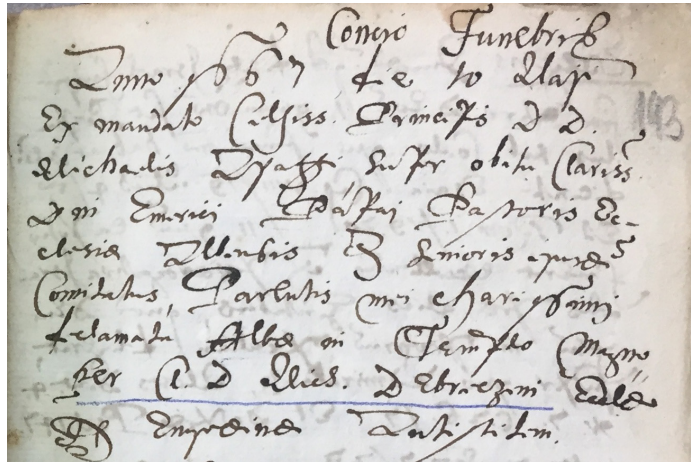 Concio Funebris
Anno 1667 die 10 Maji
Ex mandato Celsiss. Principis D D.
Michaelis Apaffi super obitu Clariss.
Dni Emerici Pápai Pastoris Ec-
clesiæ Albensis & Senioris ejusdem
Comitatus, mei charissimi
declamata Albæ in Templo Magno
per Cl. D Mich. Debreczeni Eccle
Antistitem.
143